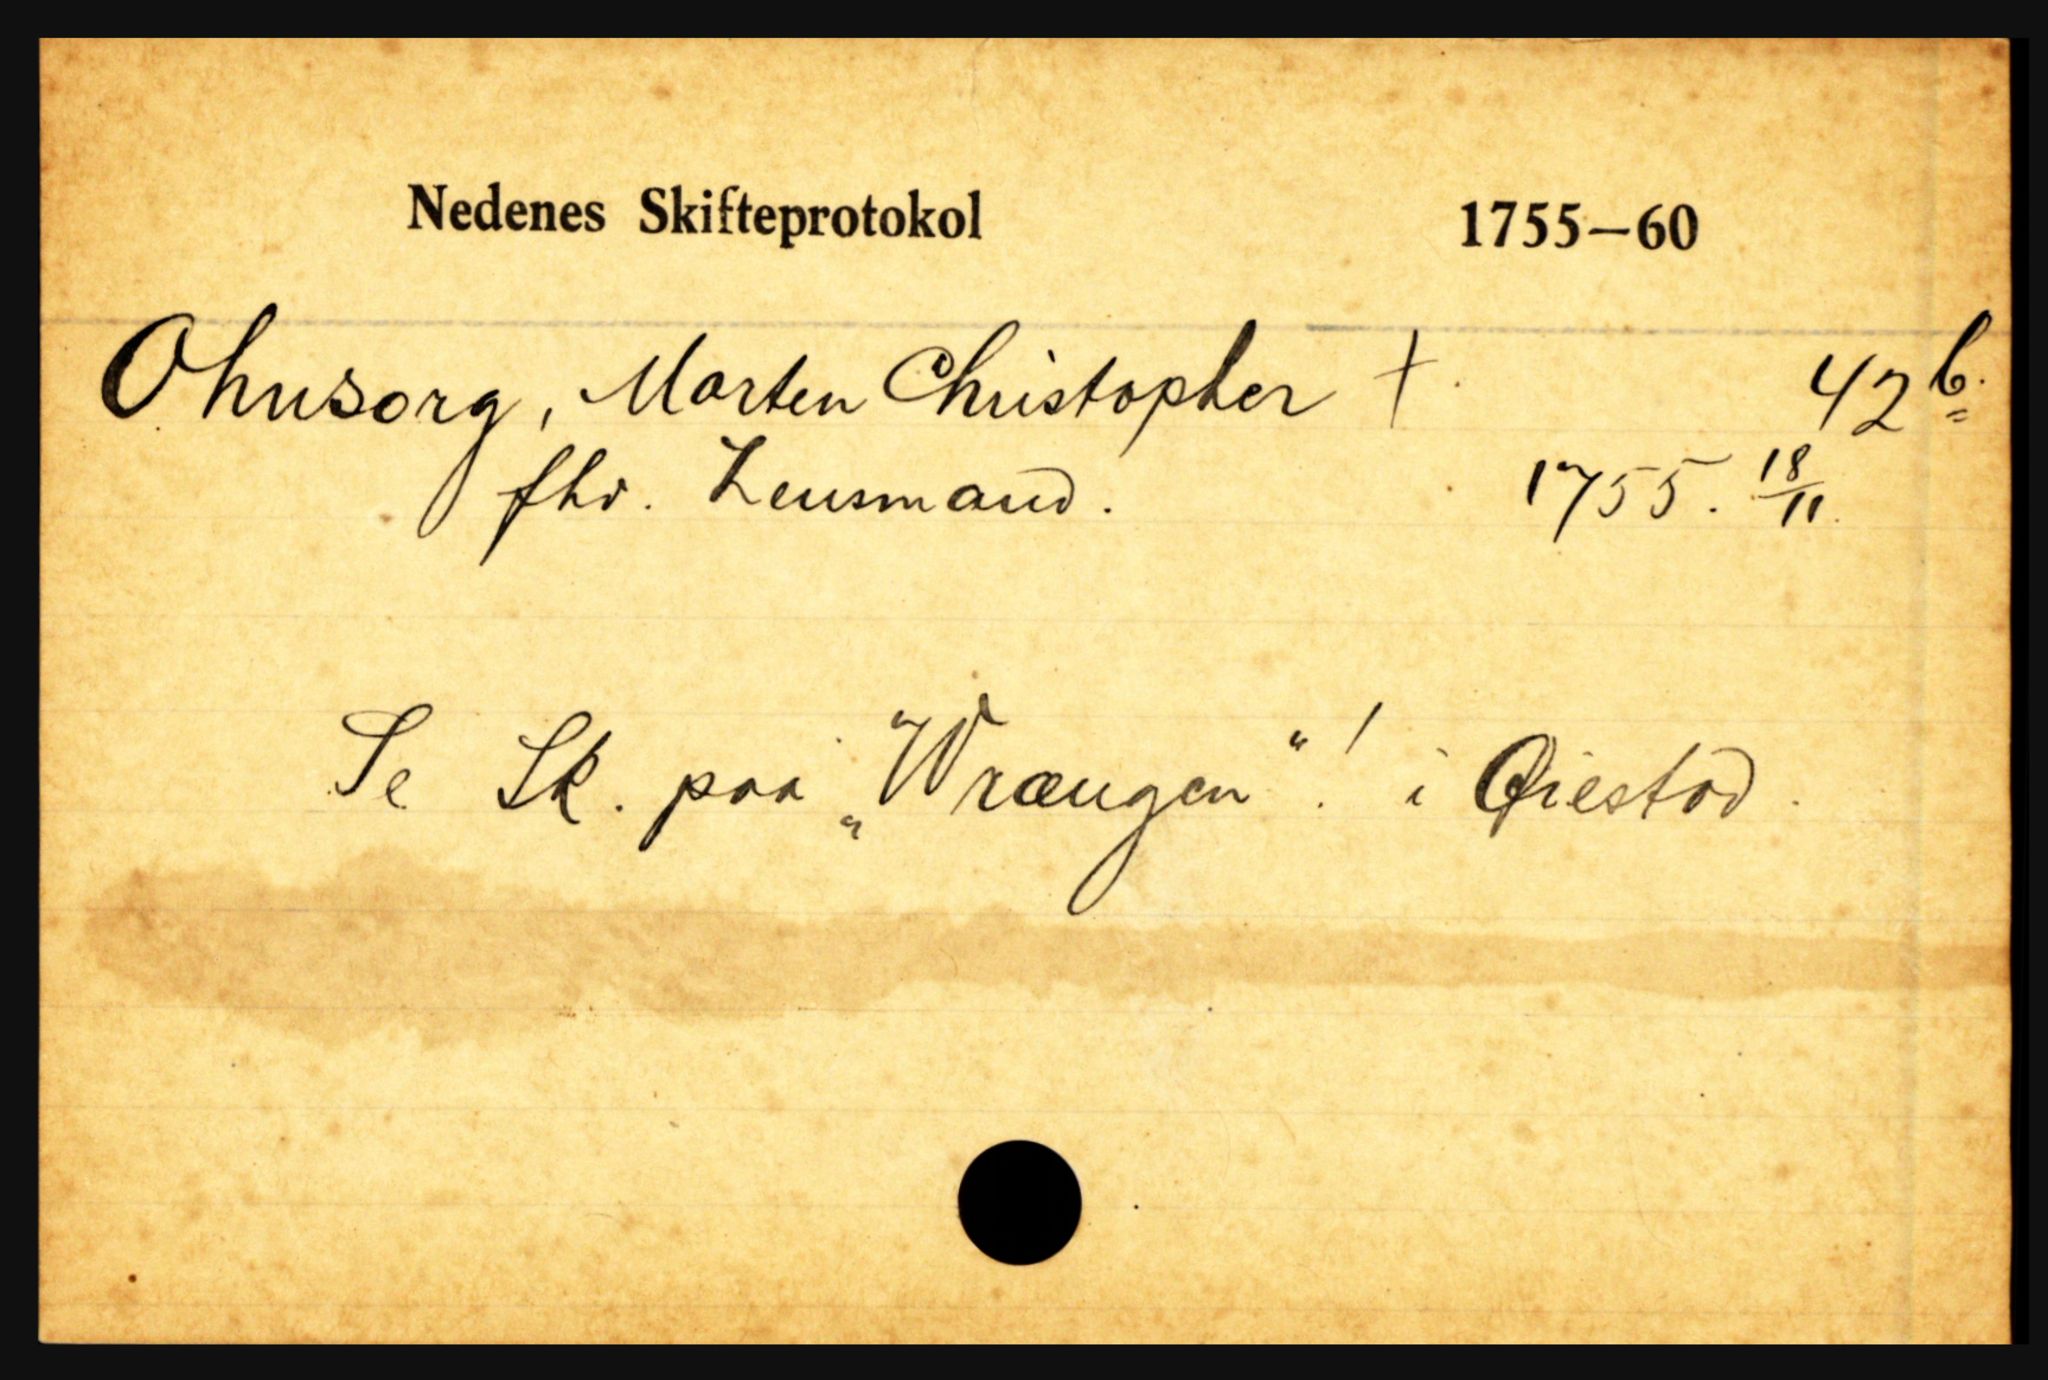 Nedenes Skifteprotokol 1755—60
Ohnsorg, Morten Christopher † 42 b.
fhv. Lensmand. 1755. 18/11.
Se Sk. paa „Wrængen“! i Øiestad.